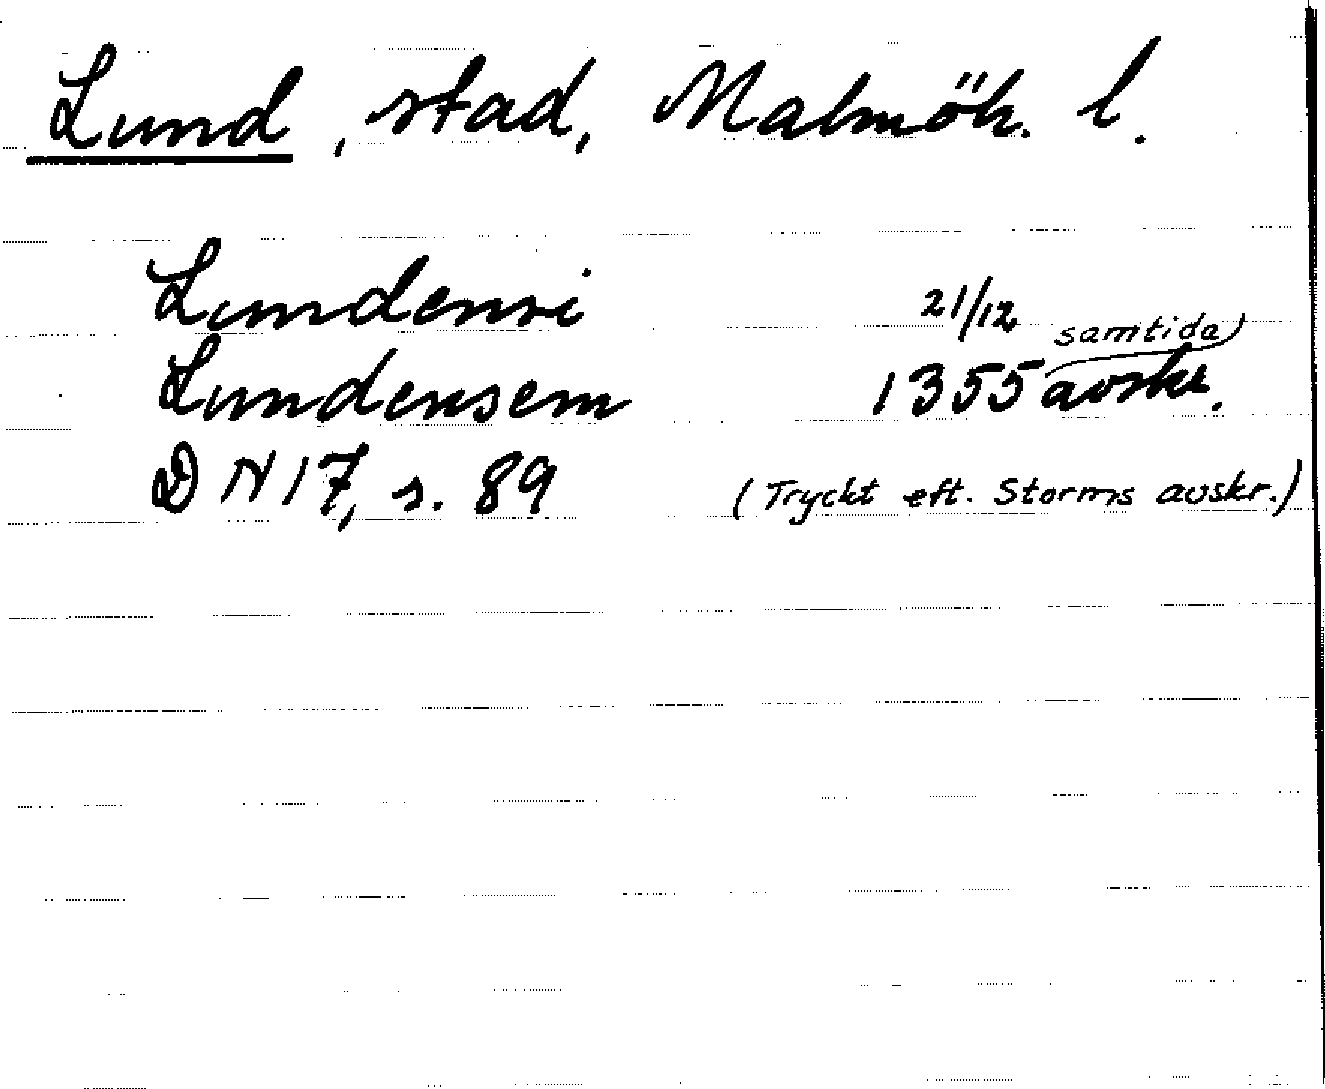 Lund, stad, Malmöh. l.
Lundensi 21/12 samtida
Lundensem 1355 avskr.
DN 17, s. 89 (Tryckt eft. Storms avskr.)